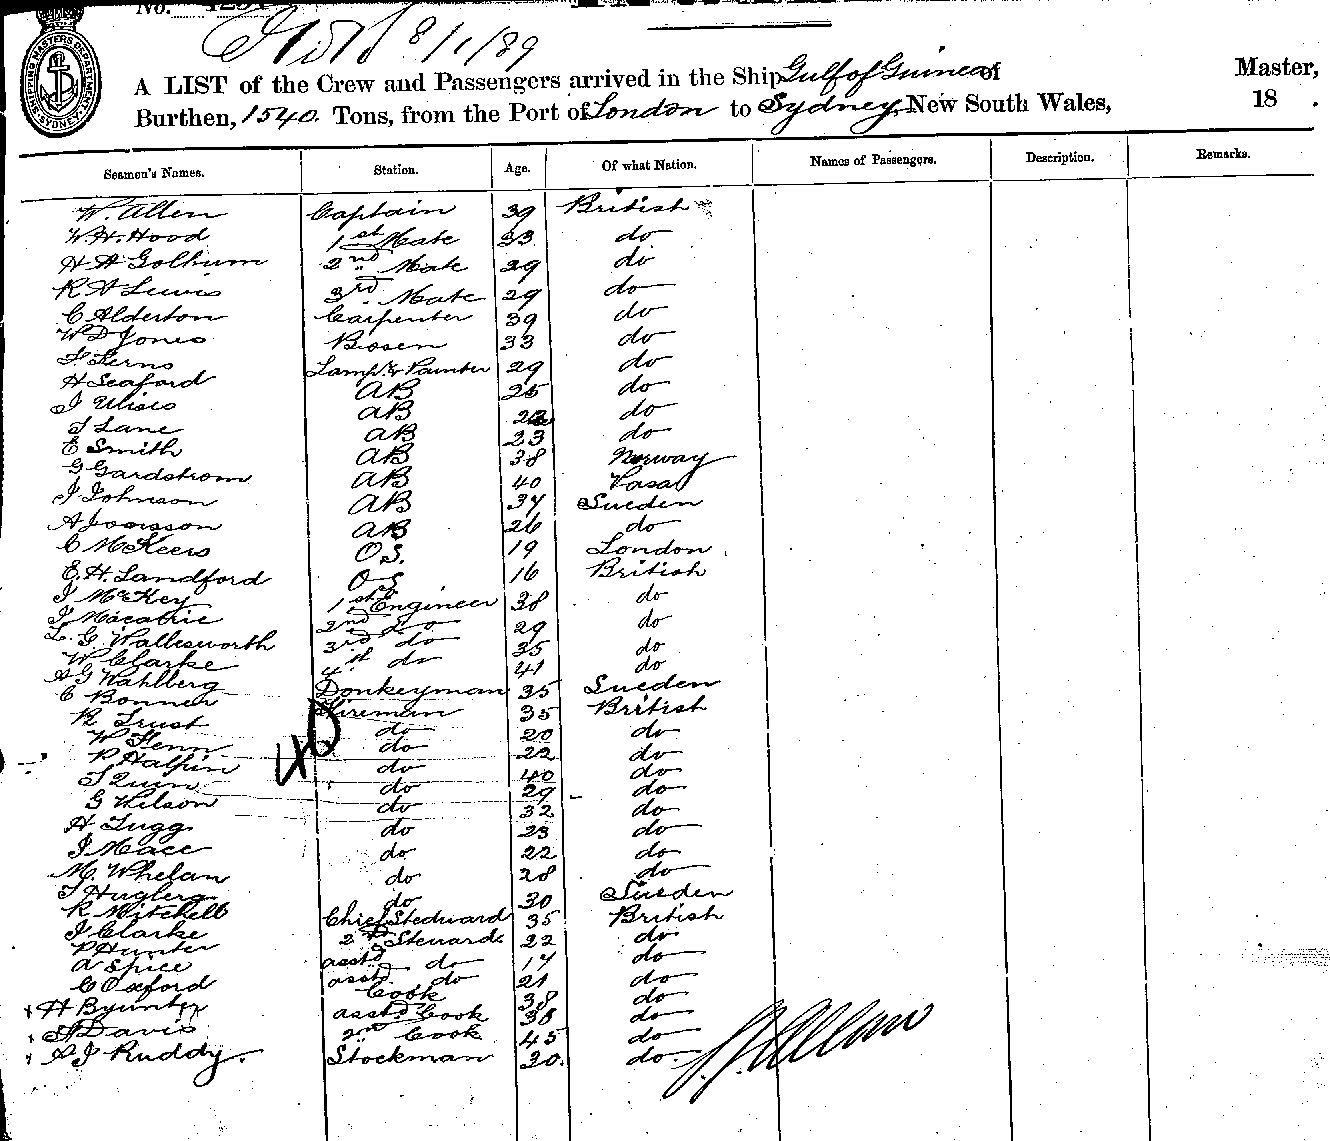 No.
8/1/89
SHIPPING MASTERS DEPARTMENT SYDNEY
A LIST of the Crew and Passengers arrived in the Ship Gulf of Guinea of Master,
Burthen, 1540. Tons, from the Port of London to Sydney, New South Wales, 18 .
Seamen's Names. Station. Age. Of what Nation. Names of Passengers. Description. Remarks.
W. Allen Captain 39 British
W. H. Hood 1st Mate 33 do
H A Golhum 2nd Mate 29 do
R A Lewis 3rd Mate 29 do
C Alderton Carpenter 39 do
W D Jones Bosen 33 do
Kerns Lamp & Painter 29 do
H Seaford AB 25 do
AB do
Lane AB 23 do
E Smith AB 38 Norway
G Gardstrom AB 40 Vasa
J Johnson AB 34 Sueden
A AB 26 do
C McKeers O.S. 19 London
E. H. Landford O S 16 British
J McKey 1st Engineer 38 do
J Macatrie 2nd do 29 do
L. G. Wallesworth 3rd do 35 do
W Clarke 4st do 41 do
A G Wahlberg Donkeyman 35 Sueden
C Bonner Fireman 35 British
R Trust do 20 do
W Fenn do 22 do
P Halpin do 40 do
T Quin do 29 do
G Wilson do 32 do
H Tugg do 23 do
J Mace do 22 do
M. Whelan do 28 do
do 30 Sueden
R Mitchell Chief Steduard 35 British
J Clarke 2nd Steuard 22 do
P Hunter asstd do 17 do
A Spice asstd do 21 do
C Oxford Cook 38 do
H Byunter asstd Cook 38 do
H Davis 2nd Cook 45 do
A J Ruddy. Stockman 30. do
Allan
40